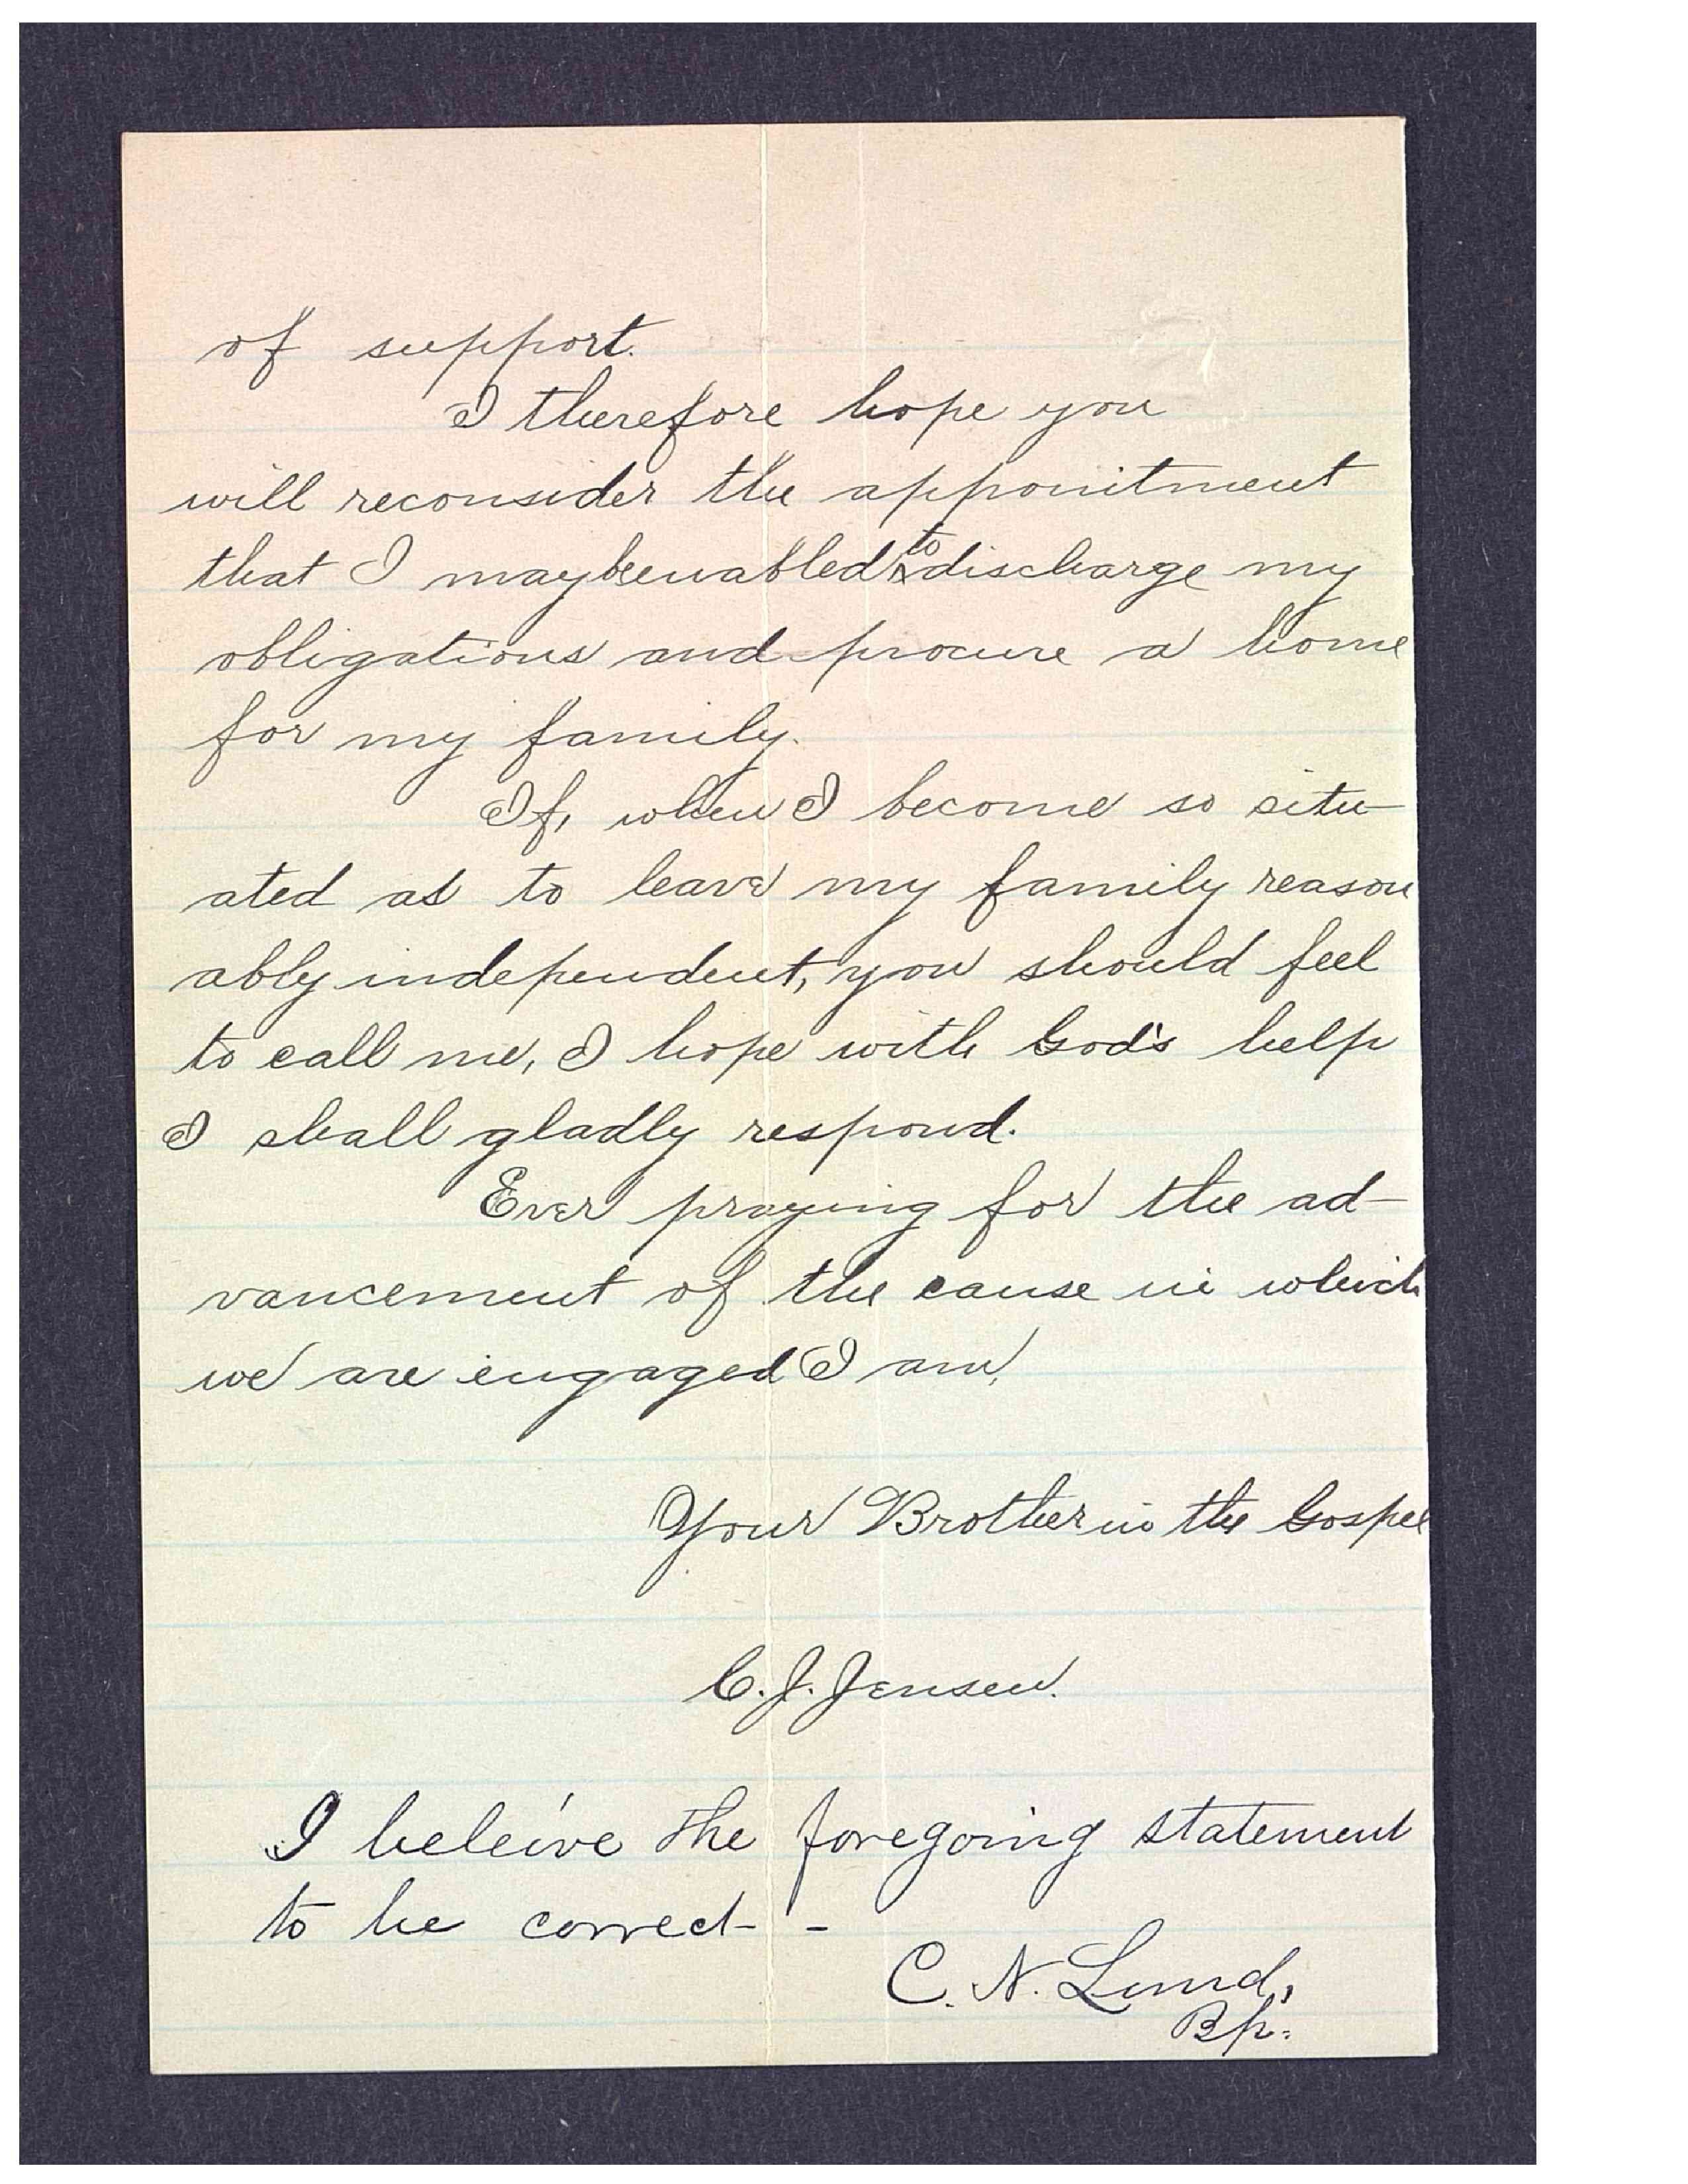 of support.
I therefore hope you
will reconsider the appointment
that I may be enabled to discharge my
obligations and procure a home
for my family.
If, when I become so situ-
ated as to leave my family reason
ably independent, you should feel
to call me, I hope with God's help
I shall gladly respond.
Ever praying for the ad-
vancement of the cause in which
we are engaged I am,
Your Brother in the Gospel
C. J. Jensen.
I beleive the foregoing statement
to be correct - -
C. N. Lund,
Bp.